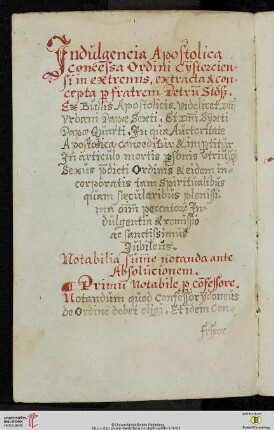 Indulgencia Apostolica
Concessa Ordini Cysterzien-
si in extremis, extracta & con-
cepta p fratrem Petru Stöß.
Ex Bullis Apostolicis, videlicet dni
Urbani Papae Sexti, Et dni Sixti
Papae Quarti. In qua Auctoritate
Apostolica conceditur & impetitur
In articulo mortis psonis utriusq
Sexus pdicti Ordinis & eidem in-
corporatis tam Spiritualibus
quam saecularibus plenissi-
ma oim peccator In-
dulgentia & remissio
ac sanctissimus
Iubileus.
Notabilia sume notanda ante
Absolucionem.
Primu Notabile p confessore.
Notandum quod Confessor ydoneus
de Ordine debet eligi. Et idem Con-
fessor